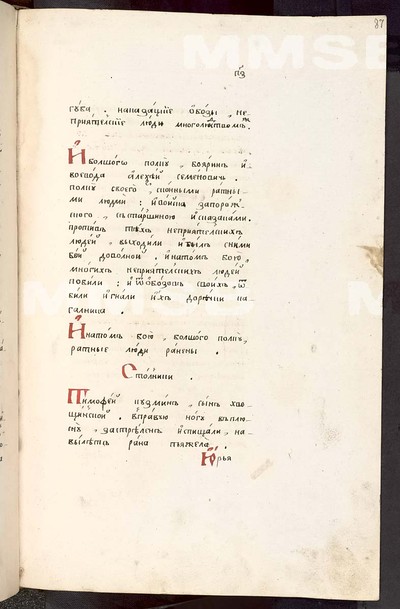 87
пз
гꙋба . нападающїе обозы , не
прїятелскїе люди многолюдствомъ .
И болшого полкꙋ , бояринъ и
воевода алеѯѣй семеновичь .
полкꙋ своего , сконными ратны
ми людми : и войска запорож
ского , състаршиною иказаками .
противъ тѣхъ неприятелскихъ
людей , выходили и былъ сними
бой доволной . инатомъ бою ,
многихъ неприятелскихъ людей
побили : и ѿобозовъ своихъ , ѿ
били игнали ихъ до рѣчки га
галника .
И натомъ бою , болшого полкꙋ ,
ратные люди ранены .
Столники .
Тимофѣй кꙋзминъ , сынъ хво
щинской . вправꙋю ногꙋ въ плю
снꙋ , застрѣленъ ипищали , на
вылетъ рана тяжела .
Юрья